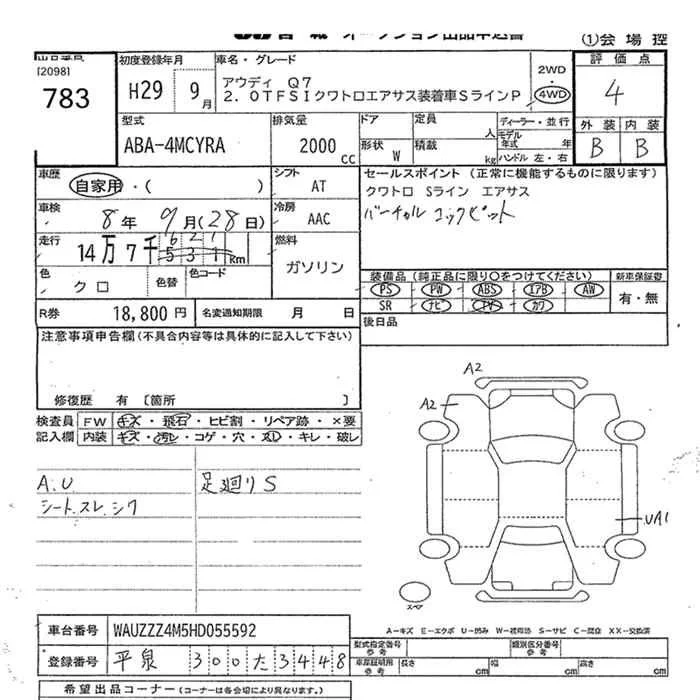 オークション出品申込書
①会場控
出品番号
[2098]
783
初度登録年月
H29 9月
車名・グレード
アウディ Q7
2.0TFSIクワトロエアサス装着車SラインP
2WD
4WD
評価点
4
外装 内装
B B
型式
ABA-4MCYRA
排気量
2000 cc
ドア 定員 人
形状 W 積載 kg
ディーラー・並行
モデル年式 年
ハンドル 左・右
車歴
自家用・( )
シフト
AT
セールスポイント (正常に機能するものに限ります)
クワトロ Sライン エアサス
バーチャル コックピット
車検
8年 9月(28日)
冷房
AAC
走行
14万7千531km
621
燃料
ガソリン
色
クロ
色替
色コード
装備品 (純正品に限り〇をつけてください)
PS PW ABS エアB AW
SR ナビ TV カワ
新車保証書
有・無
R券
18,800円
名変通知期限 月 日
後日品
注意事項申告欄(不具合内容等は具体的に記入して下さい)
修復歴 有 〔箇所 〕
検査員
記入欄
FW キズ・飛石・ヒビ割・リペア跡・×要
内装 キズ・汚レ・コゲ・穴・スレ・キレ・破レ
A.U
シート.スレ.シワ
足廻りS
A2
A2
UA1
スペア
A-キズ E-エクボ U-凹み W-補修跡 S-サビ C-腐食 XX-交換済
車台番号
WAUZZZ4M5HD055592
登録番号
平泉 300た3448
型式指定番号
参考
類別区分番号
参考
車庫証明用
参考
長さ cm
幅 cm
高さ cm
希望出品コーナー (コーナーは各会場により異なります。)